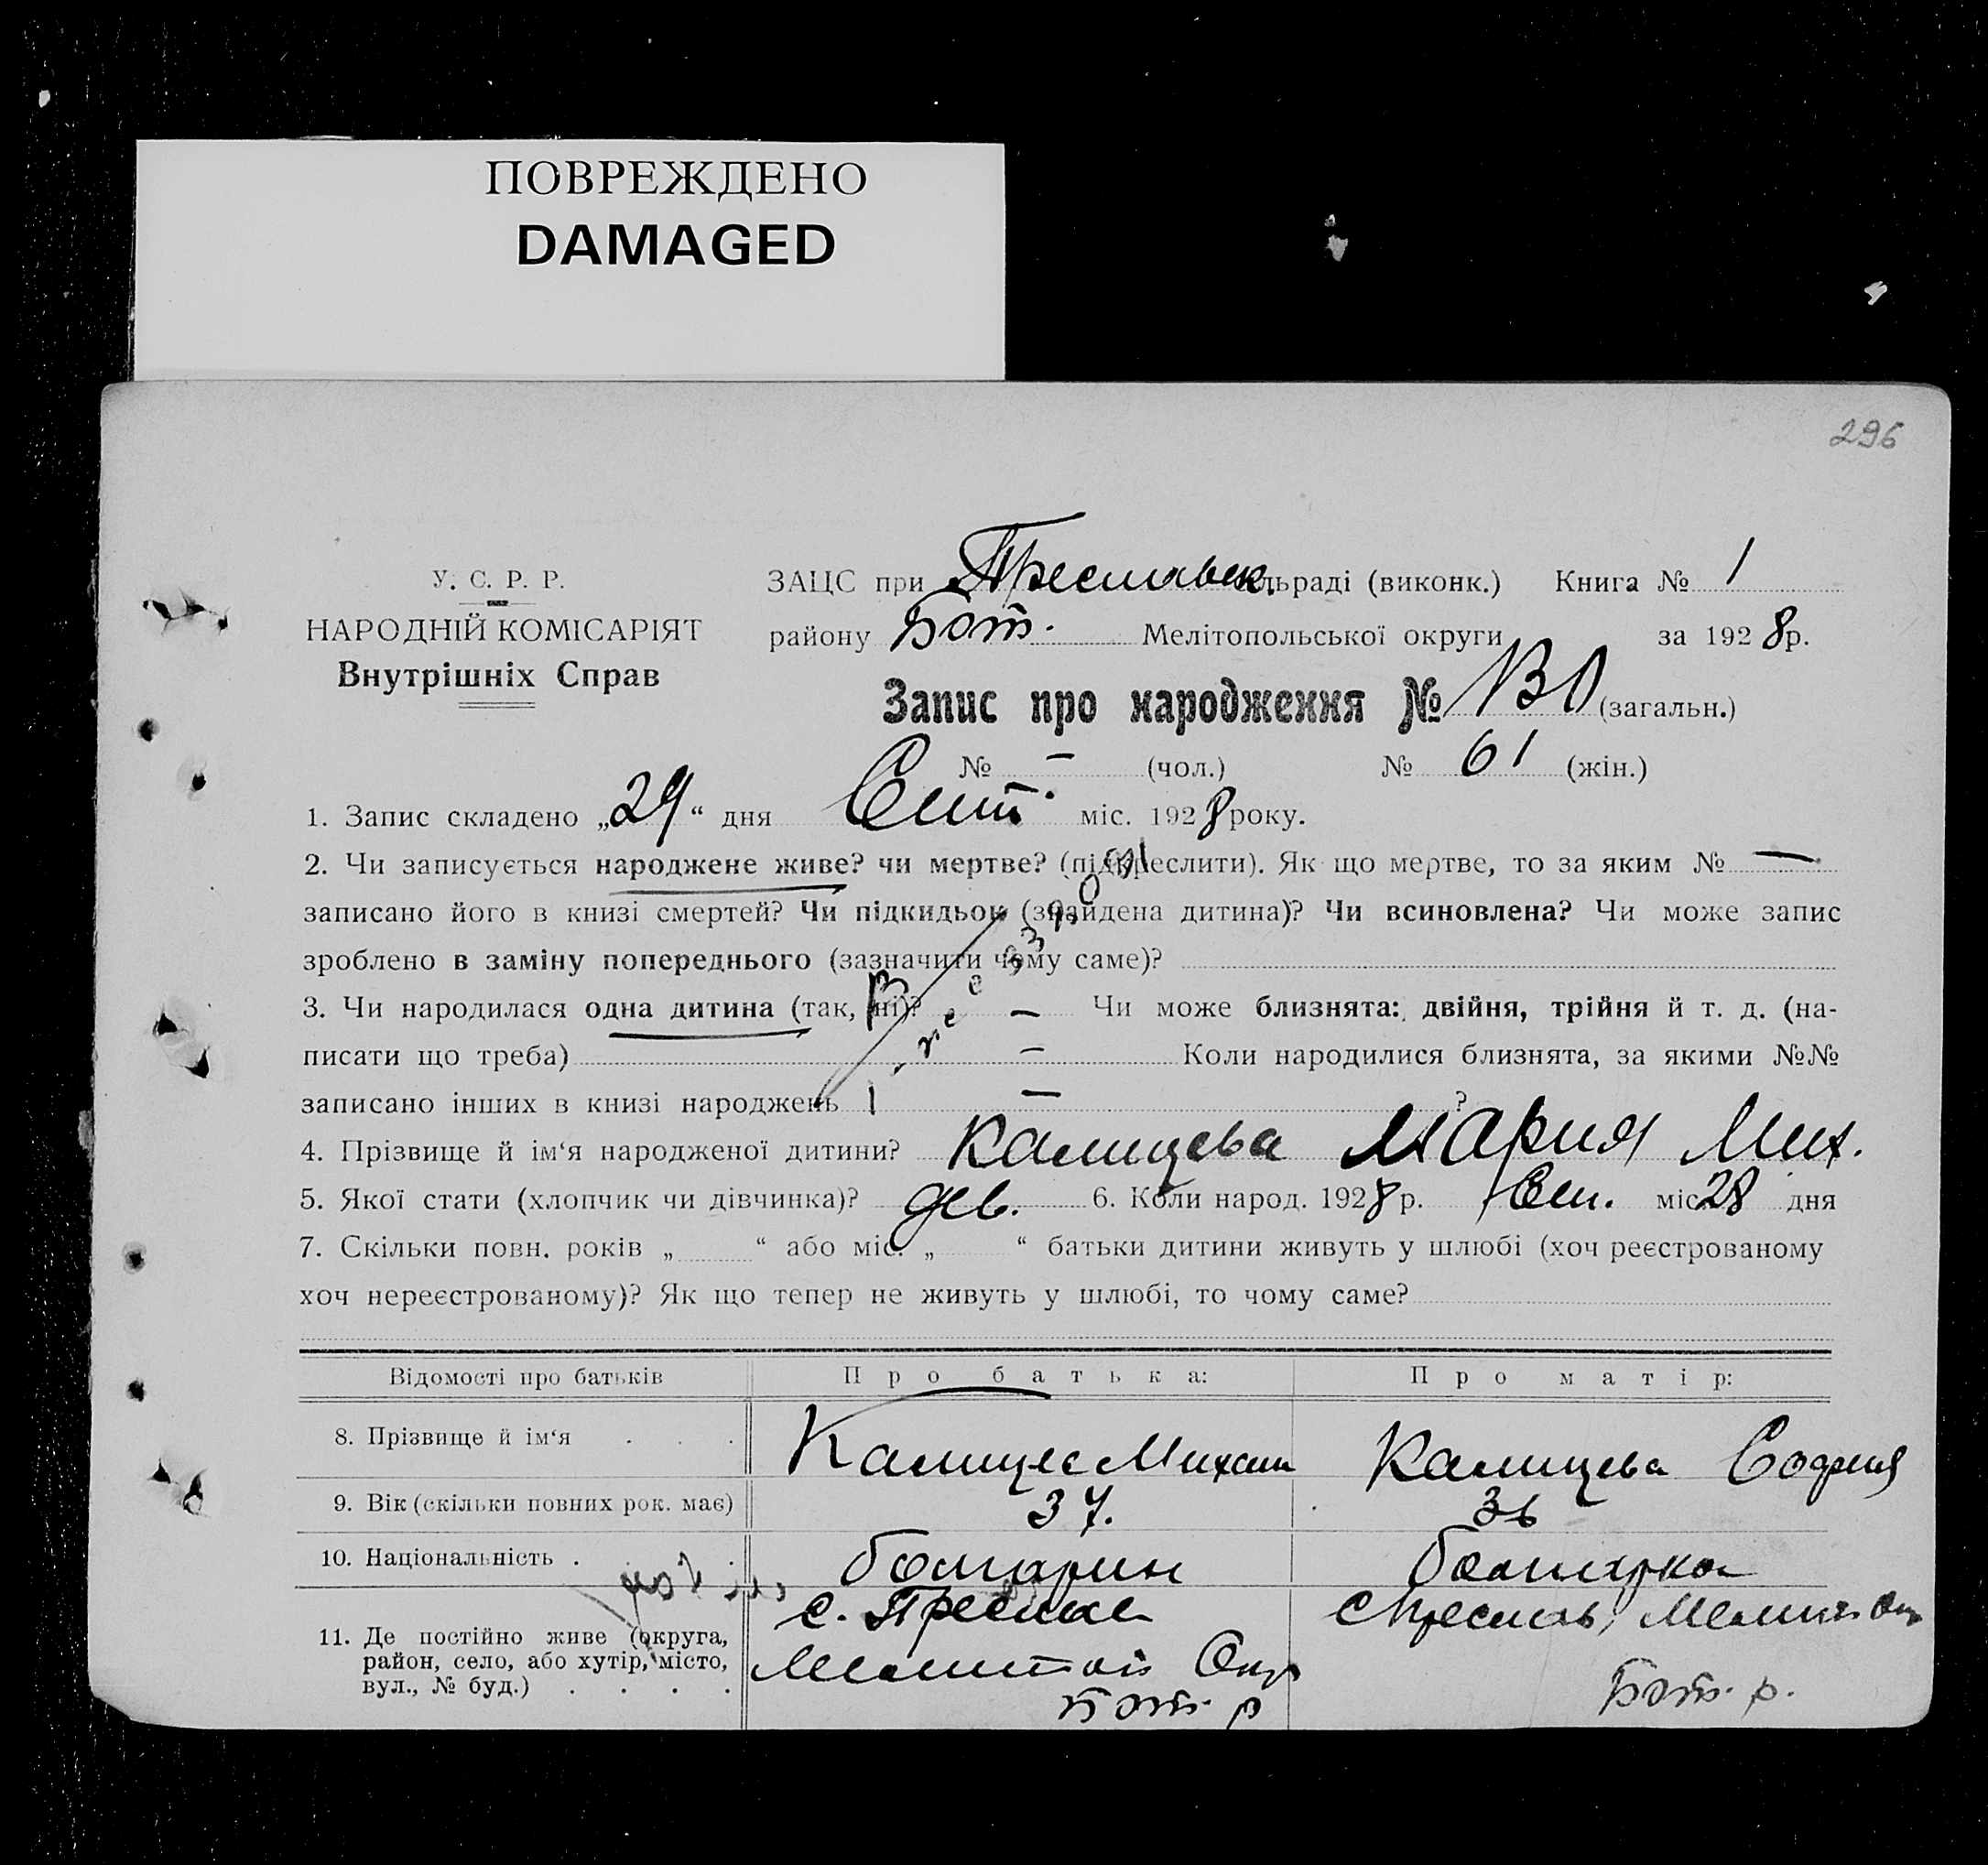 ПОВРЕЖДЕНО
DAMAGED
296
У. С. Р. Р.
НАРОДНІЙ КОМІСАРІЯТ
Внутрішніх Справ
ЗАЦС при Преславськ. льраді (виконк.) Книга № 1
району Бот. Мелітопольської округи за 1928р.
Запис про народження № (загальн.)
№ — (чол.) № 61 (жін.)
1. Запис складено „29“ дня Сент. міс. 1928 року.
2. Чи записується народжене живе? чи мертве? (підкреслити). Як що мертве, то за яким № —
записано його в книзі смертей? Чи підкидьок (знайдена дитина)? Чи всиновлена? Чи може запис
зроблено в заміну попереднього (зазначити чому саме)?
3. Чи народилася одна дитина (так, ні)? — Чи може близнята: двійня, трійня й т. д. (на-
писати що треба) — Коли народилися близнята, за якими №№
записано інших в книзі народжень — ?
4. Прізвище й ім‘я народженої дитини? Калицева Мария Мих.
5. Якої стати (хлопчик чи дівчинка)? дев. 6. Коли народ. 1928 р. Сен. міс 28 дня
7. Скільки повн. років „ “ або міс. „ “ батьки дитини живуть у шлюбі (хоч реєстрованому
хоч нереєстрованому)? Як що тепер не живуть у шлюбі, то чому саме?
Відомості про батьків Про батька: Про матір:
8. Прізвище й ім‘я . . . Калицев Михаил Калицева София
9. Вік (скільки повних рок. має) 37. 36
10. Національність . . болгарин болгарка
11. Де постійно живе (округа,
район, село, або хутір, місто,
вул., № буд.) . . . .
с. Преслав
Мелитоп Окр
Бот. р
с Преслав, Мелит Окр
Бот. р.